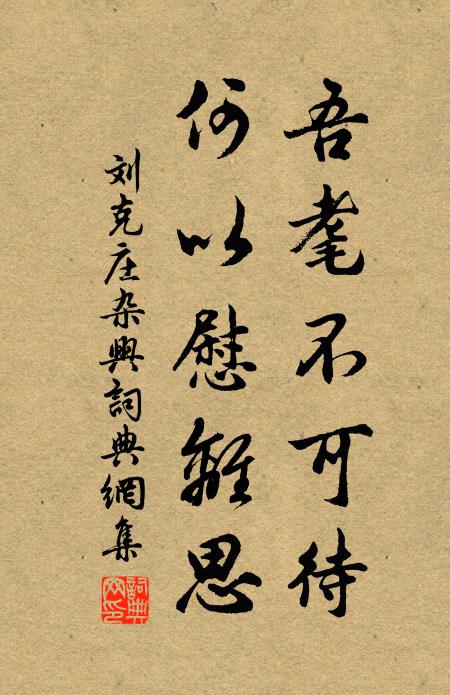 吾耄不可待
何以慰離思
刘克庄杂興詞典網集
詞典网印